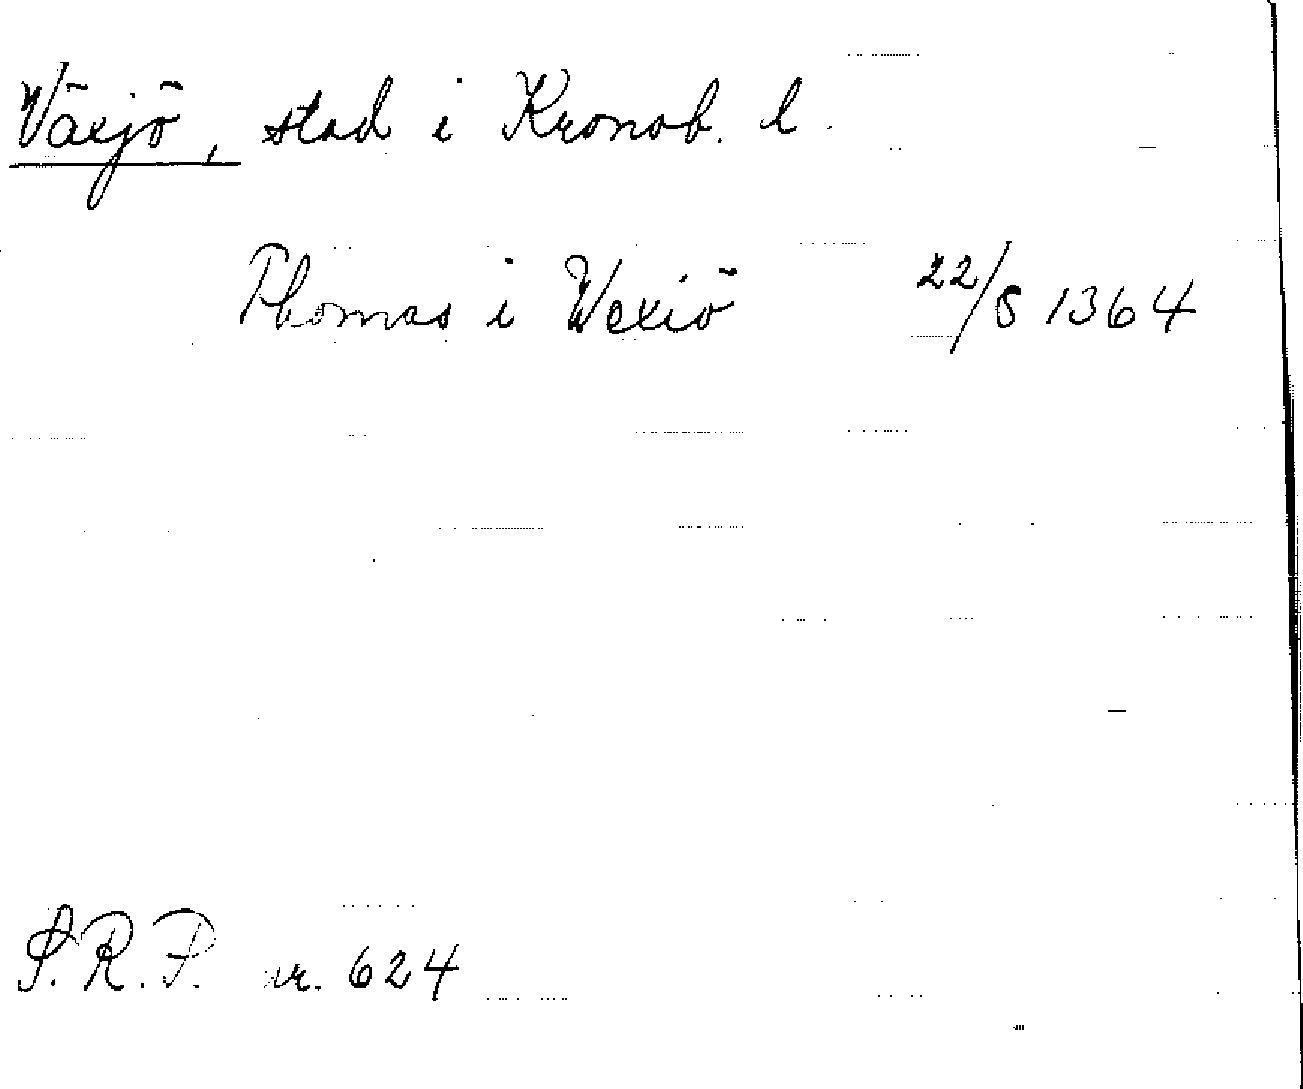 Växjö, stad i Kronob. l.
Thomas i Wexiö 22/8 1364
S.R.P. nr. 624